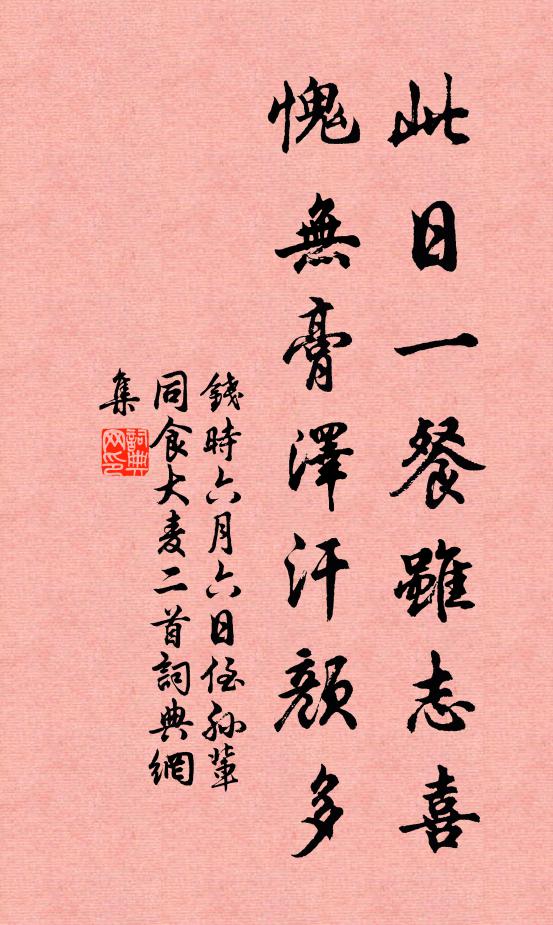 此日一餐雖志喜
愧無膏澤汗顏多
錢時六月六日侄孫輩
同食大麦二首詞典網
集
詞典
网印